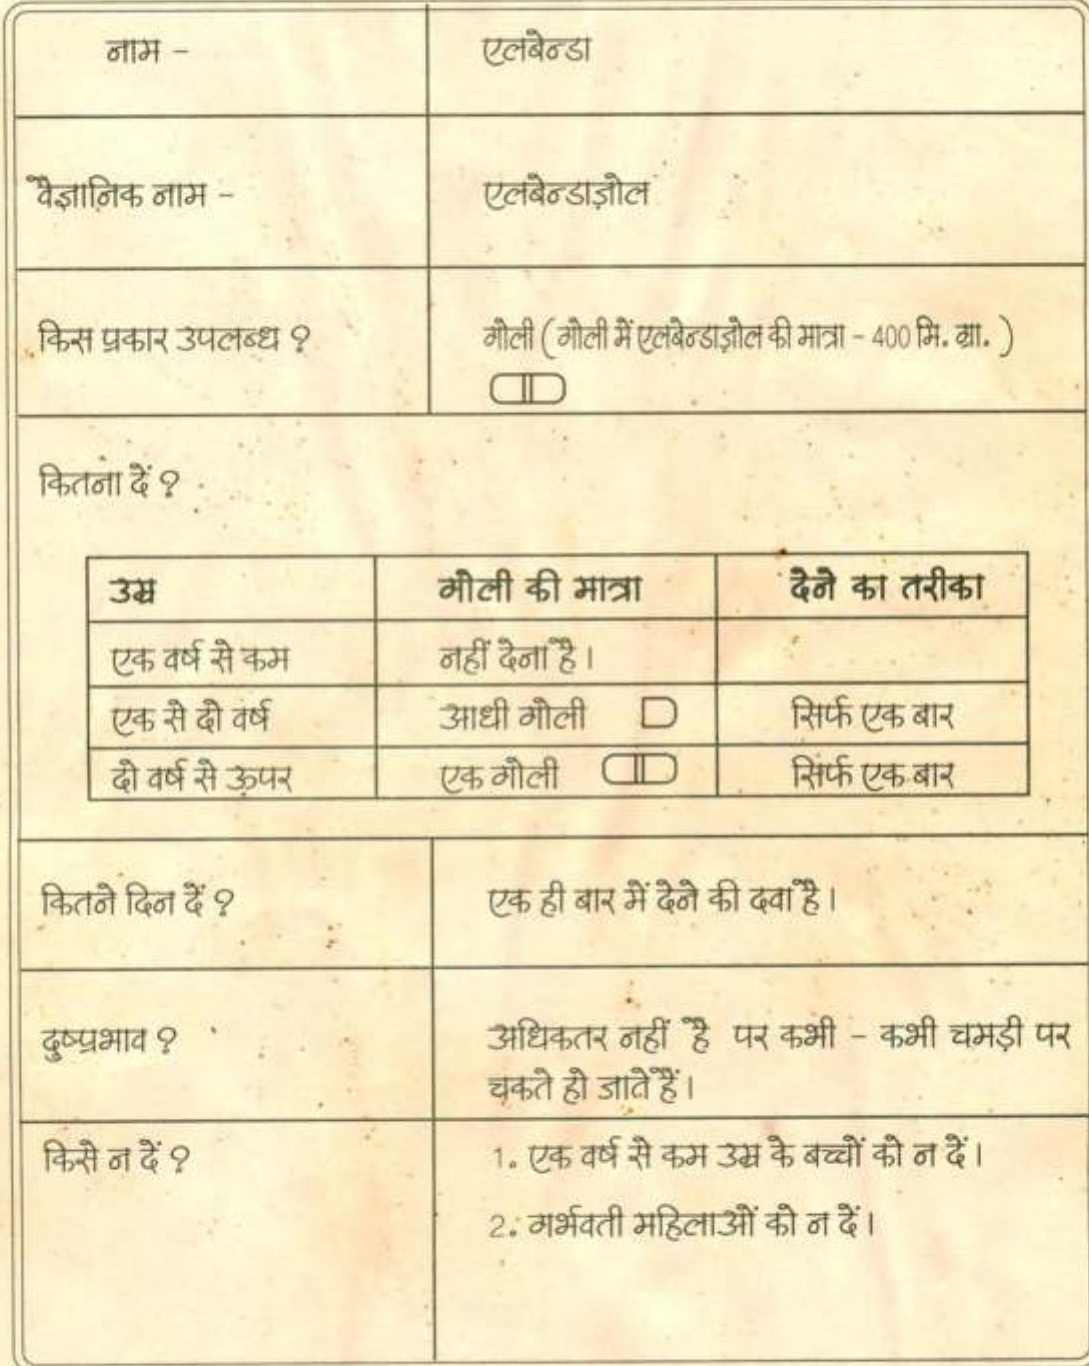 नाम -
एलबेन्डा
वैज्ञानिक नाम -
एलबेन्डाज़ोल
किस प्रकार उपलब्ध ?
गोली ( गोली में एलबेन्डाज़ोल की मात्रा - 400 मि. ग्रा. )
कितना दें ?
उम्र गोली की मात्रा देने का तरीका
एक वर्ष से कम नहीं देना है।
एक से दो वर्ष आधी गोली सिर्फ एक बार
दो वर्ष से ऊपर एक गोली सिर्फ एक बार
कितने दिन दें ?
एक ही बार में देने की दवा है।
दुष्प्रभाव ?
अधिकतर नहीं है पर कभी - कभी चमड़ी पर
चकते हो जाते हैं।
किसे न दें ?
1. एक वर्ष से कम उम्र के बच्चों को न दें।
2. गर्भवती महिलाओं को न दें।